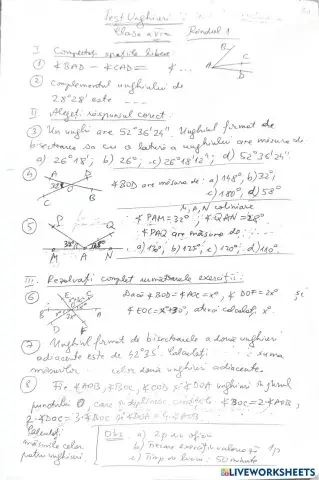 Test Unghiuri
Clasa a VI-a Rândul 1
I. Completați spațiile libere:
① ∢BAD - ∢CAD = ∢...
B
A
C
D
② Complementul unghiului de
28°28' este ----
II. Alegeți răspunsul corect:
③ Un unghi are 52°36'24''. Unghiul format de
bisectoarea sa cu o latură a unghiului are măsura de
a) 26°18'; b) 26°; c) 26°18'12''; d) 52°36'24''
④ A
32°
∢BOD are măsura de: a) 148°, b) 32°,
c) 180°, d) 58°
M, A, N coliniare
⑤ P Q
38° 28°
M A N
∢PAM = 38°, ∢QAN = 28°
∢PAQ are măsura de
III. Rezolvați complet următoarele exerciții:
⑥ Dacă ∢BOD = ∢AOC = x°, ∢DOF = 2x° și
∢EOC = x°+30°, atunci calculați x°.
⑦ Unghiul format de bisectoarele a două unghiuri
adiacente este de 42°35'. Calculați suma
măsurilor celor două unghiuri adiacente.
⑧ Fie ∢AOB, ∢BOC, ∢COD și ∢DOA unghiuri în jurul
punctului O care ∢BOC = 2·∢AOB,
2·∢DOC = 3·∢BOC și ∢DOA = 4·∢AOB.
Calculați
măsurile celor
patru unghiuri.
Obs: a) 2p din oficiu
b) Fiecare exercițiu valorează 1p
c) Timp de lucru: 50 minute
LIVEWORKSHEETS